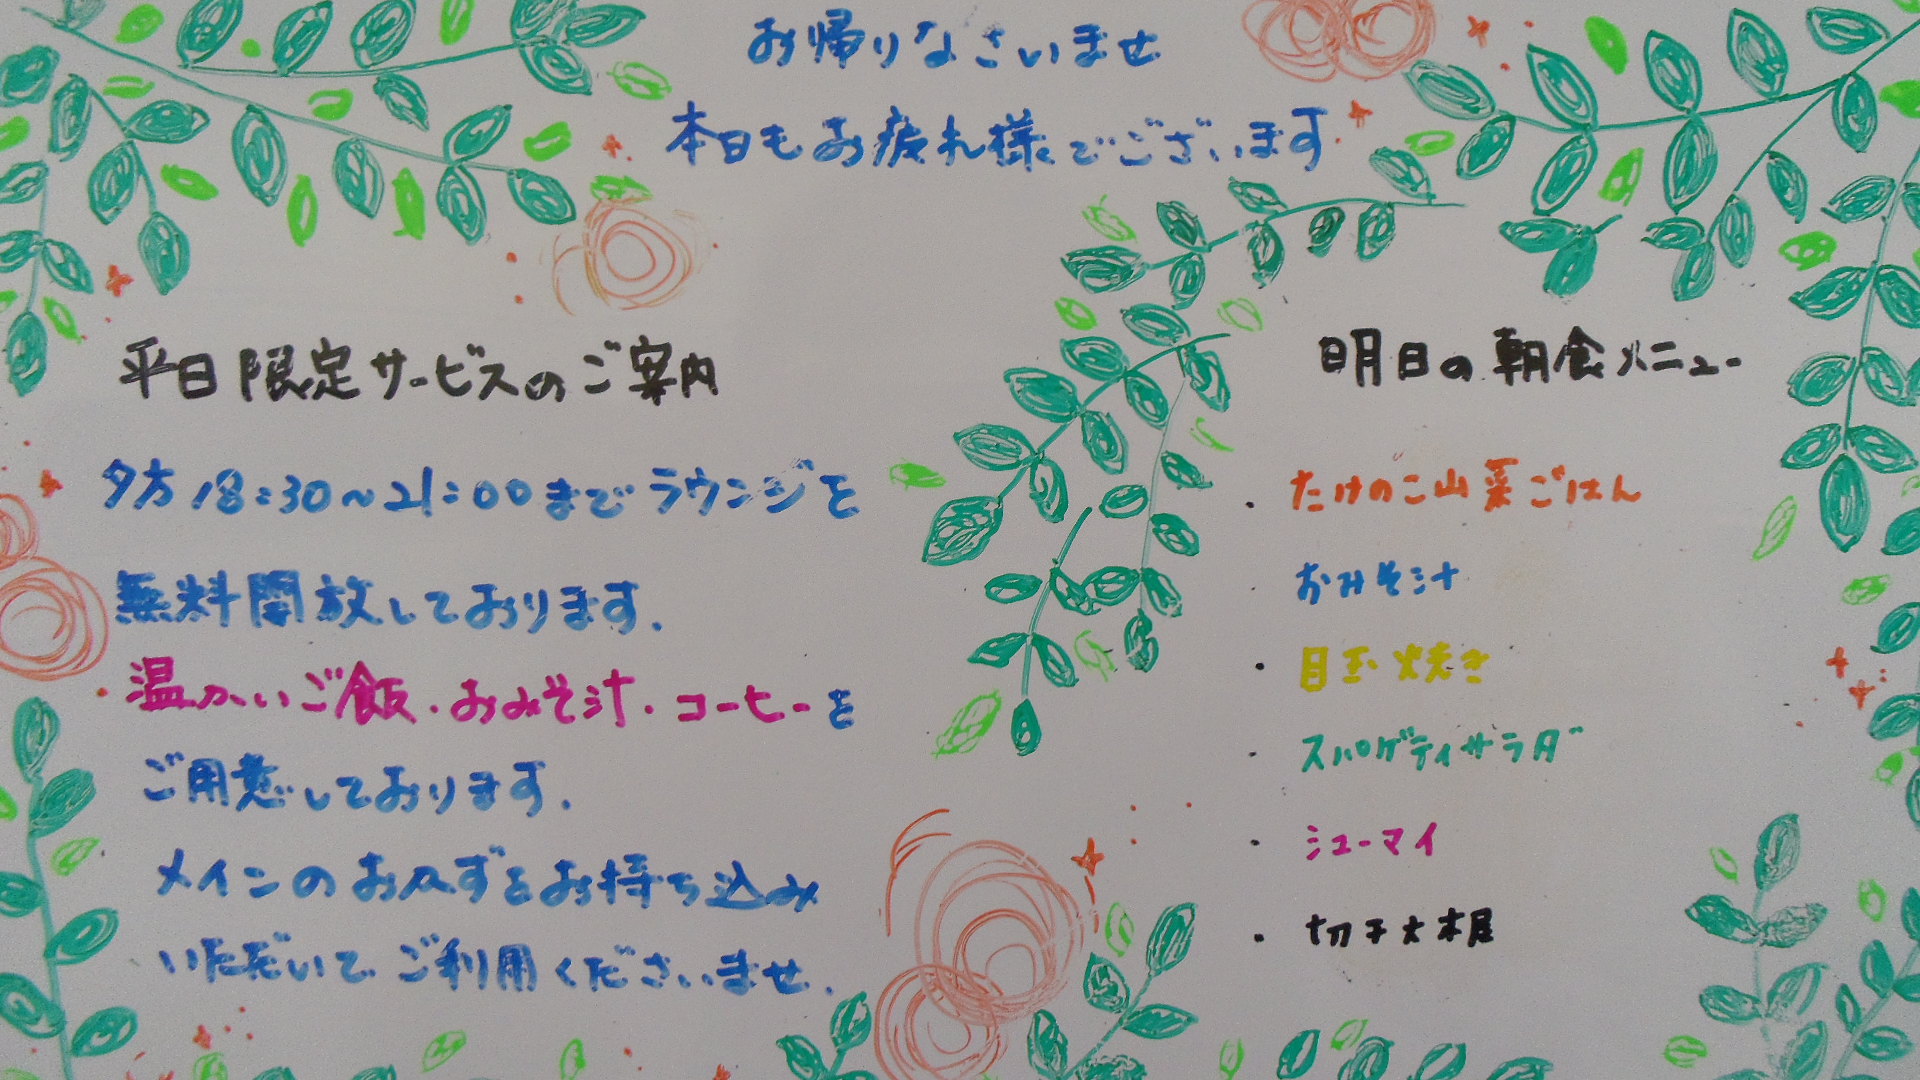 お帰りなさいませ
本日もお疲れ様でございます
平日限定サービスのご案内
夕方18:30～21:00までラウンジを
無料開放しております.
温かいご飯・おみそ汁・コーヒーを
ご用意しております.
メインのおかずをお持ち込み
いただいてご利用くださいませ.
明日の朝食メニュー
・たけのこ山菜ごはん
・おみそ汁
・目玉焼き
・スパゲティサラダ
・シューマイ
・切干大根